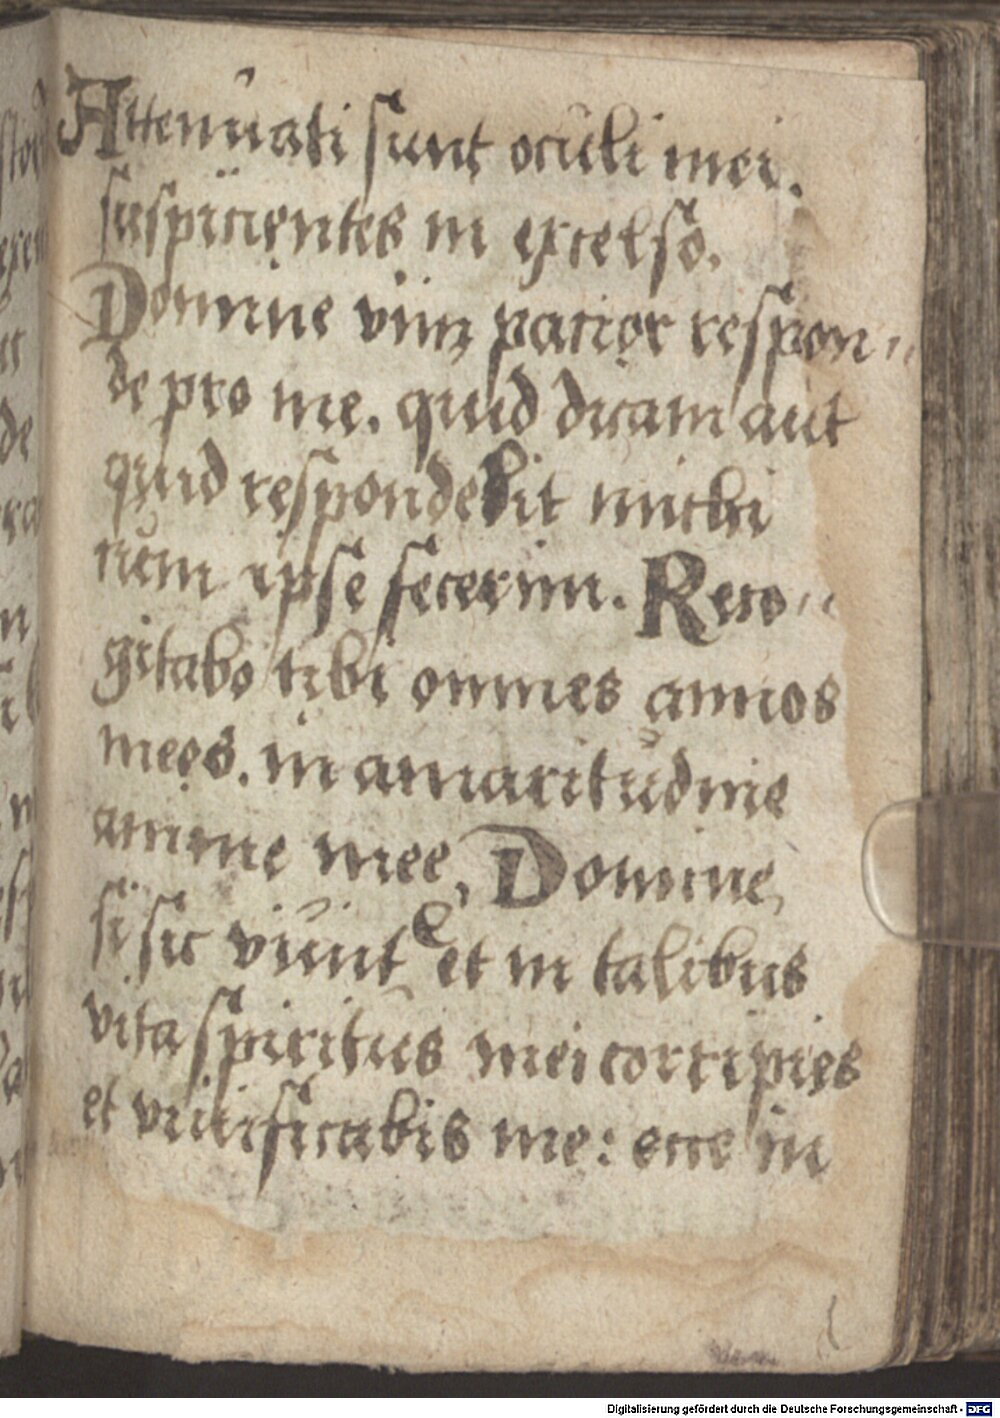 Attenuati sunt oculi mei.
suspicientes in excelso.
Domine vim patior respon
de pro me. quid dicam aut
quid respondebit michi
cum ipse fecerim. Reco
gitabo tibi omnes annos
meos. in amaritudine
anime mee, Domine,
si sic viuit et in talibus
vita spiritus mei corripies
et viuificabis me: ecce in
Digitalisierung gefördert durch die Deutsche Forschungsgemeinschaft - DFG